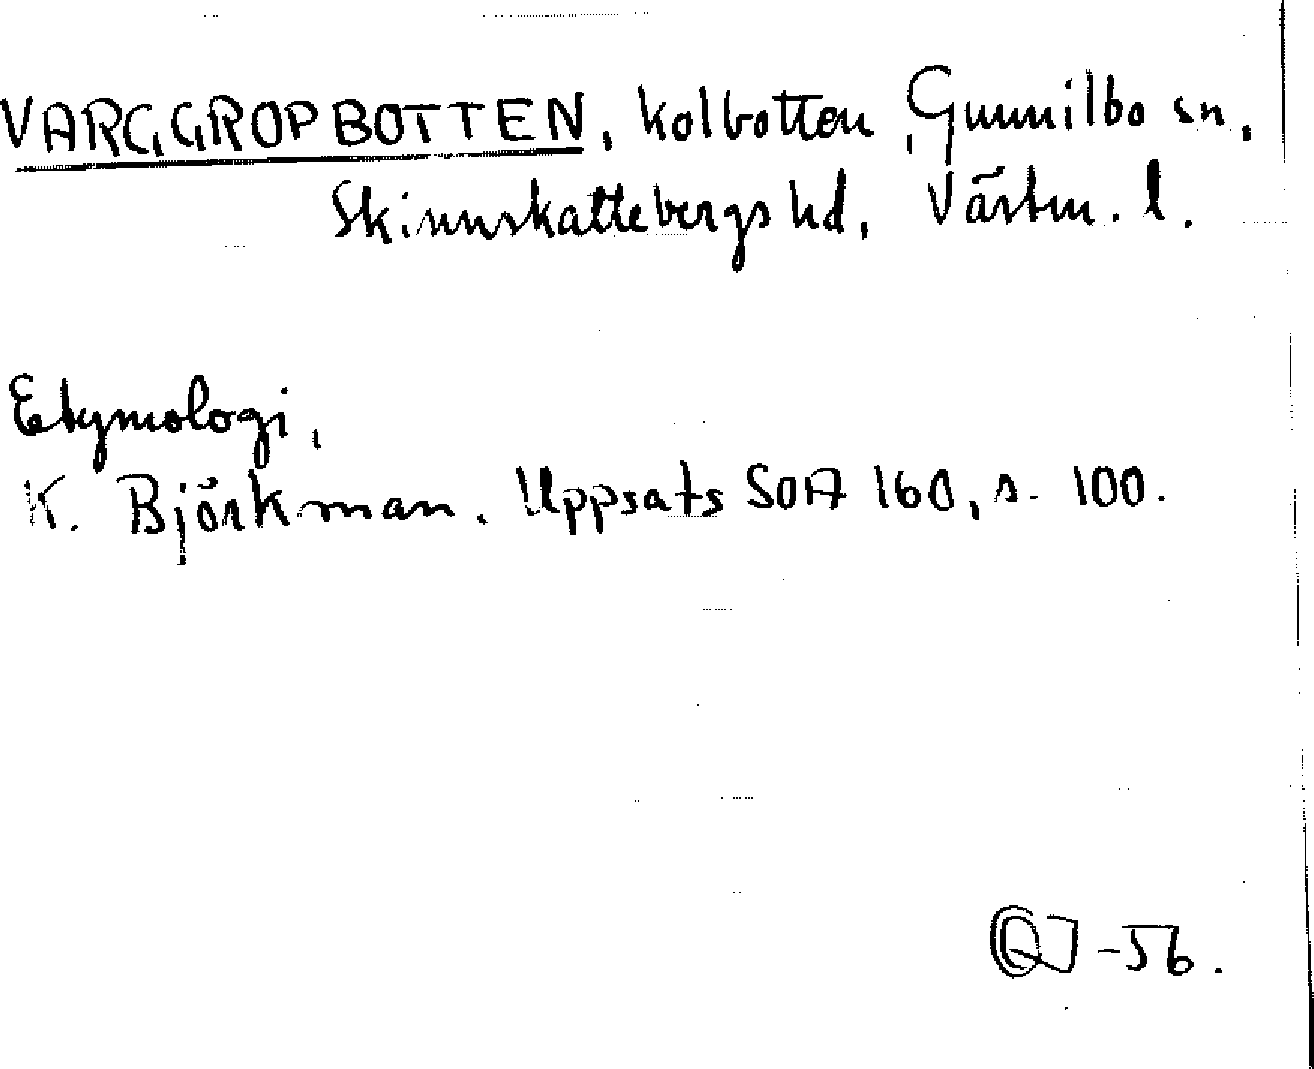 VARGGROPBOTTEN, kolbotten, Gunnilbo sn,
Skinnskattebergs hd, Västm. l.
Etymologi,
K. Björkman. Uppsats SOA 160, s. 100.
-56.